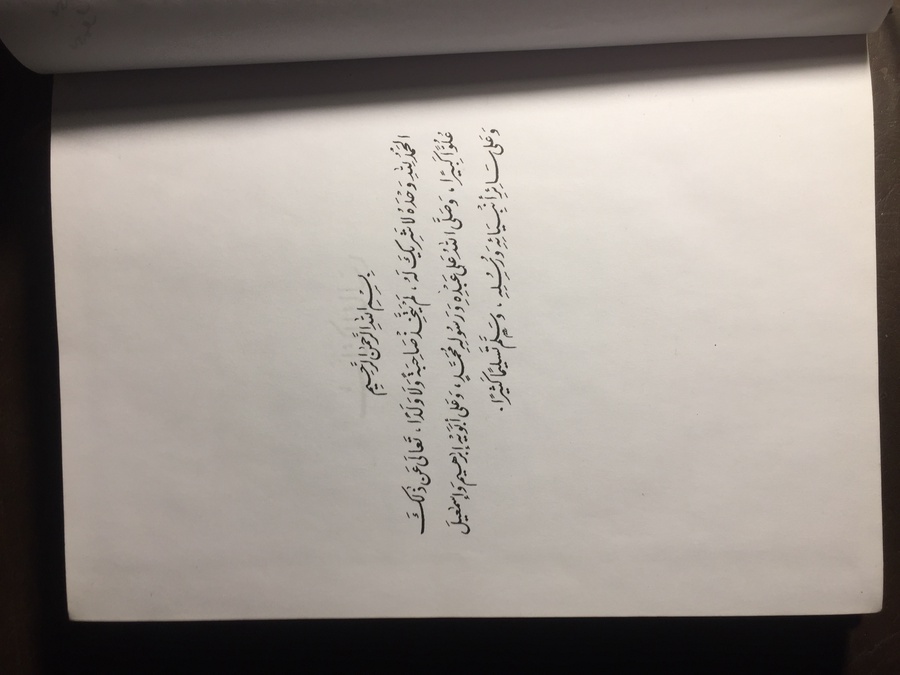 بِسْمِ اللهِ الرَّحْمٰنِ الرَّحِيْمِ
الْحَمْدُ لِلّٰهِ وَحْدَهُ لَا شَرِيكَ لَهُ ، لَمْ يَتَّخِذْ صَاحِبَةً وَلَا وَلَدًا ، تَعَالَى عَنْ ذٰلِكَ
عُلُوًّا كَبِيْرًا ، وَصَلَّى اللهُ عَلَى عَبْدِهِ وَرَسُولِهِ مُحَمَّدٍ ، وَعَلَى أَبَوَيْهِ إِبْرٰهِيمَ وَإِسْمٰعِيلَ
وَعَلَى سَائِرِ أَنْبِيَائِهِ وَرُسُلِهِ ، وَسَلَّمَ تَسْلِيْمًا كَثِيْرًا .